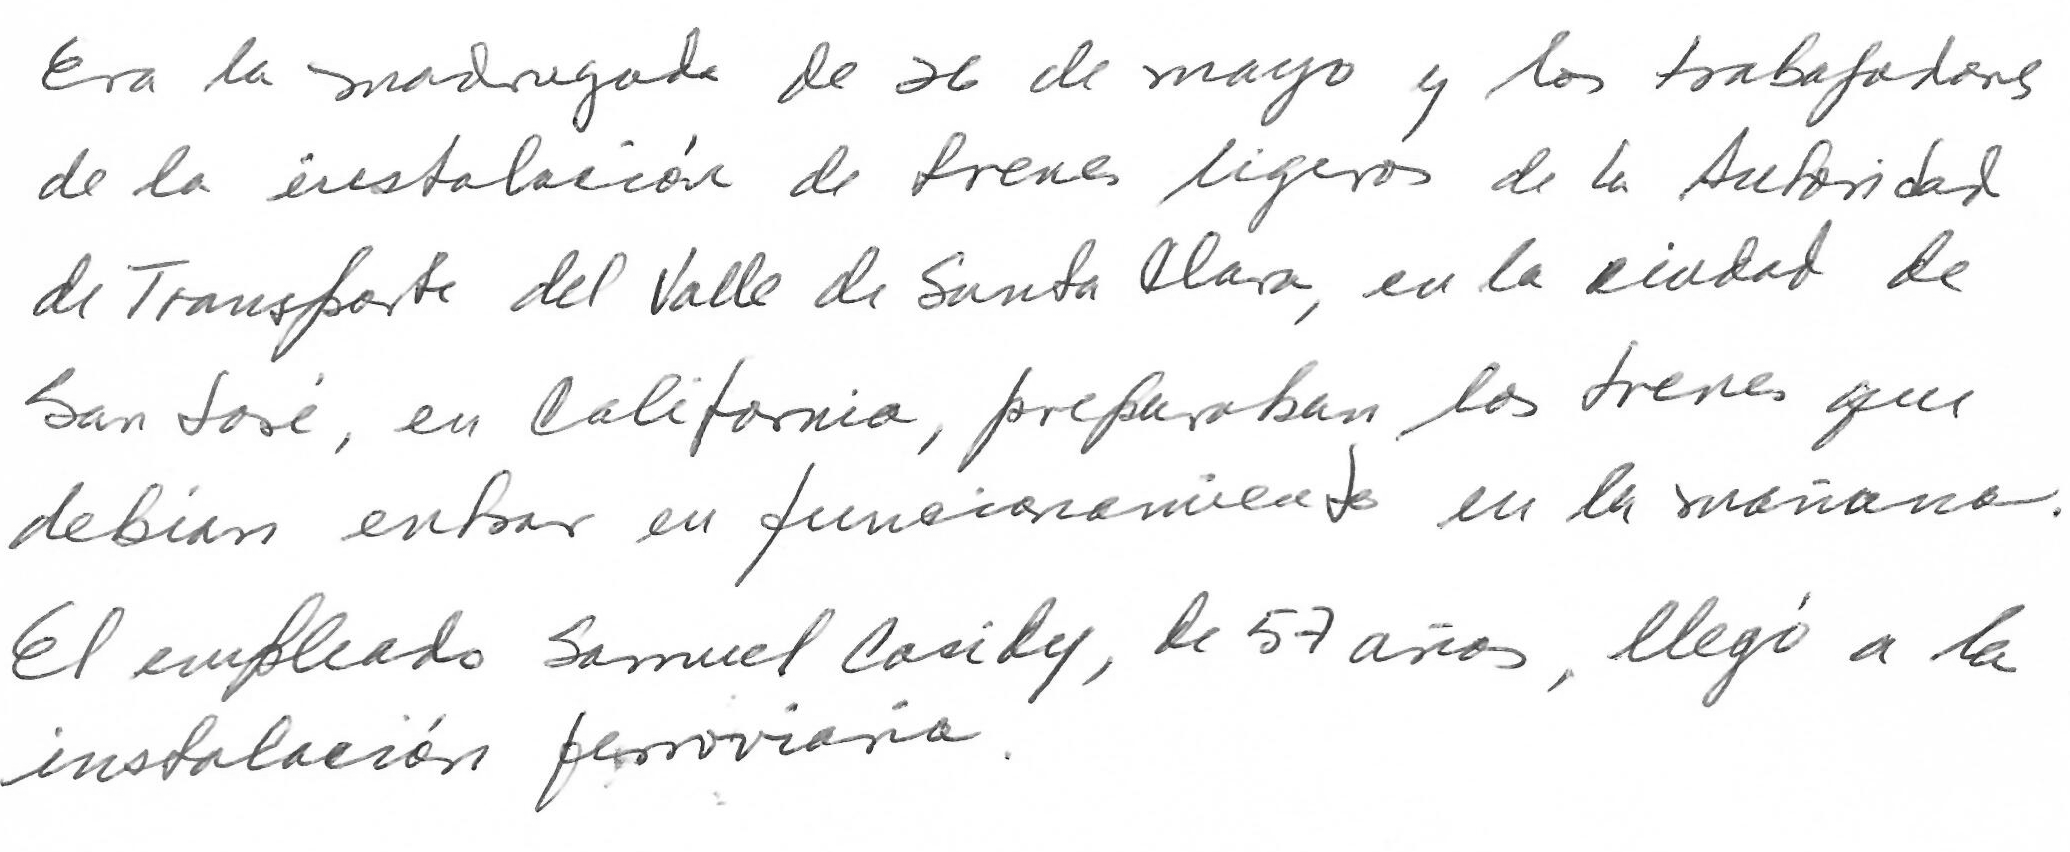 Era la madrugada de 26 de mayo y los trabajadores
de la instalación de trenes ligeros de la Autoridad
de Transporte del Valle de Santa Clara, en la ciudad de
San José, en California, preparaban los trenes que
debían entrar en funcionamiento en la mañana.
El empleado Samuel Casidy, de 57 años, llegó a la
instalación ferroviaria.